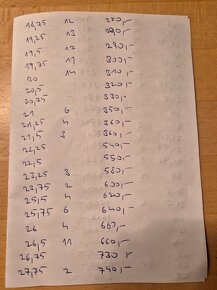 18,75 12 280,-
19,25 13 290,-
19,5 17 290,-
19,75 17 300,-
20 14 310,-
20,5 320,-
20,75 330,-
21 6 350,-
21,25 4 360,-
21,5 3 360,-
22,25 540,-
22,5 550,-
23,25 3 560,-
23,75 2 600,-
25,5 4 620,-
25,75 6 640,-
26 4 660,-
26,5 11 660,-
26,75 730,-
27,75 2 740,-